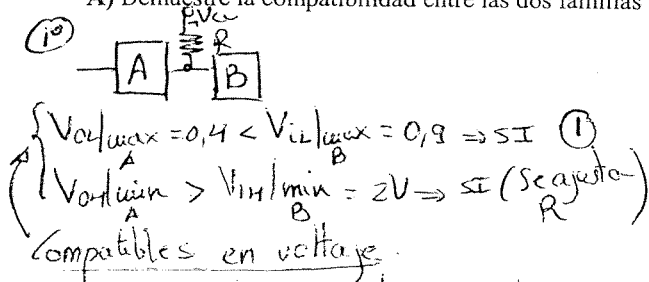 A) Demuestre la compatibilidad entre las dos familias
1º
Vcc
R
A B
VOL|max A = 0,4 < VIL|max B = 0,9 ⇒ SI ①
VOH|min A > VIH|min B = 2V ⇒ SI (Se ajusta R)
Compatibles en voltaje.